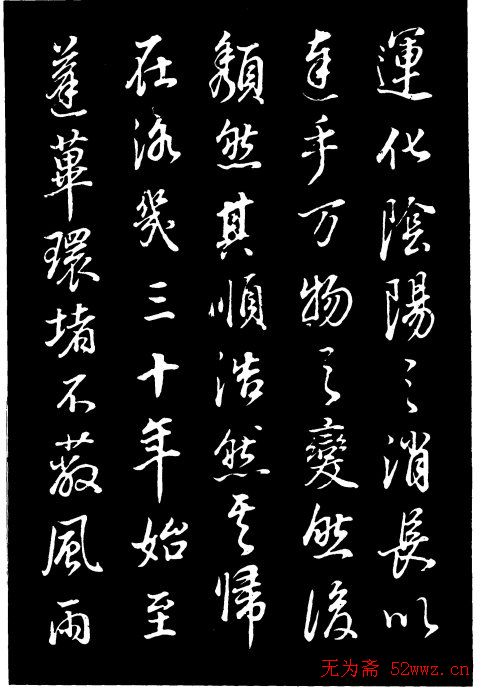 運化陰陽之消長以
達乎万物之變然後
頹然其順浩然其歸
在洛幾三十年始至
蓬蓽環堵不蔽風雨
无为斋 52wwz.cn